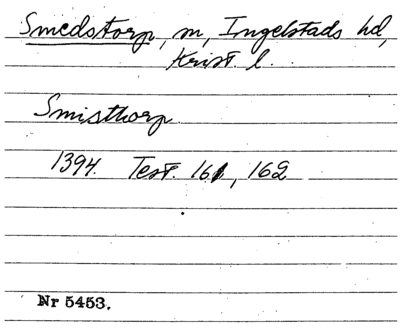 Smedstorp, m, Ingelstads hd,
Krist. l.
Smisthorp
1394. Test. 161, 162
Nr 5453.